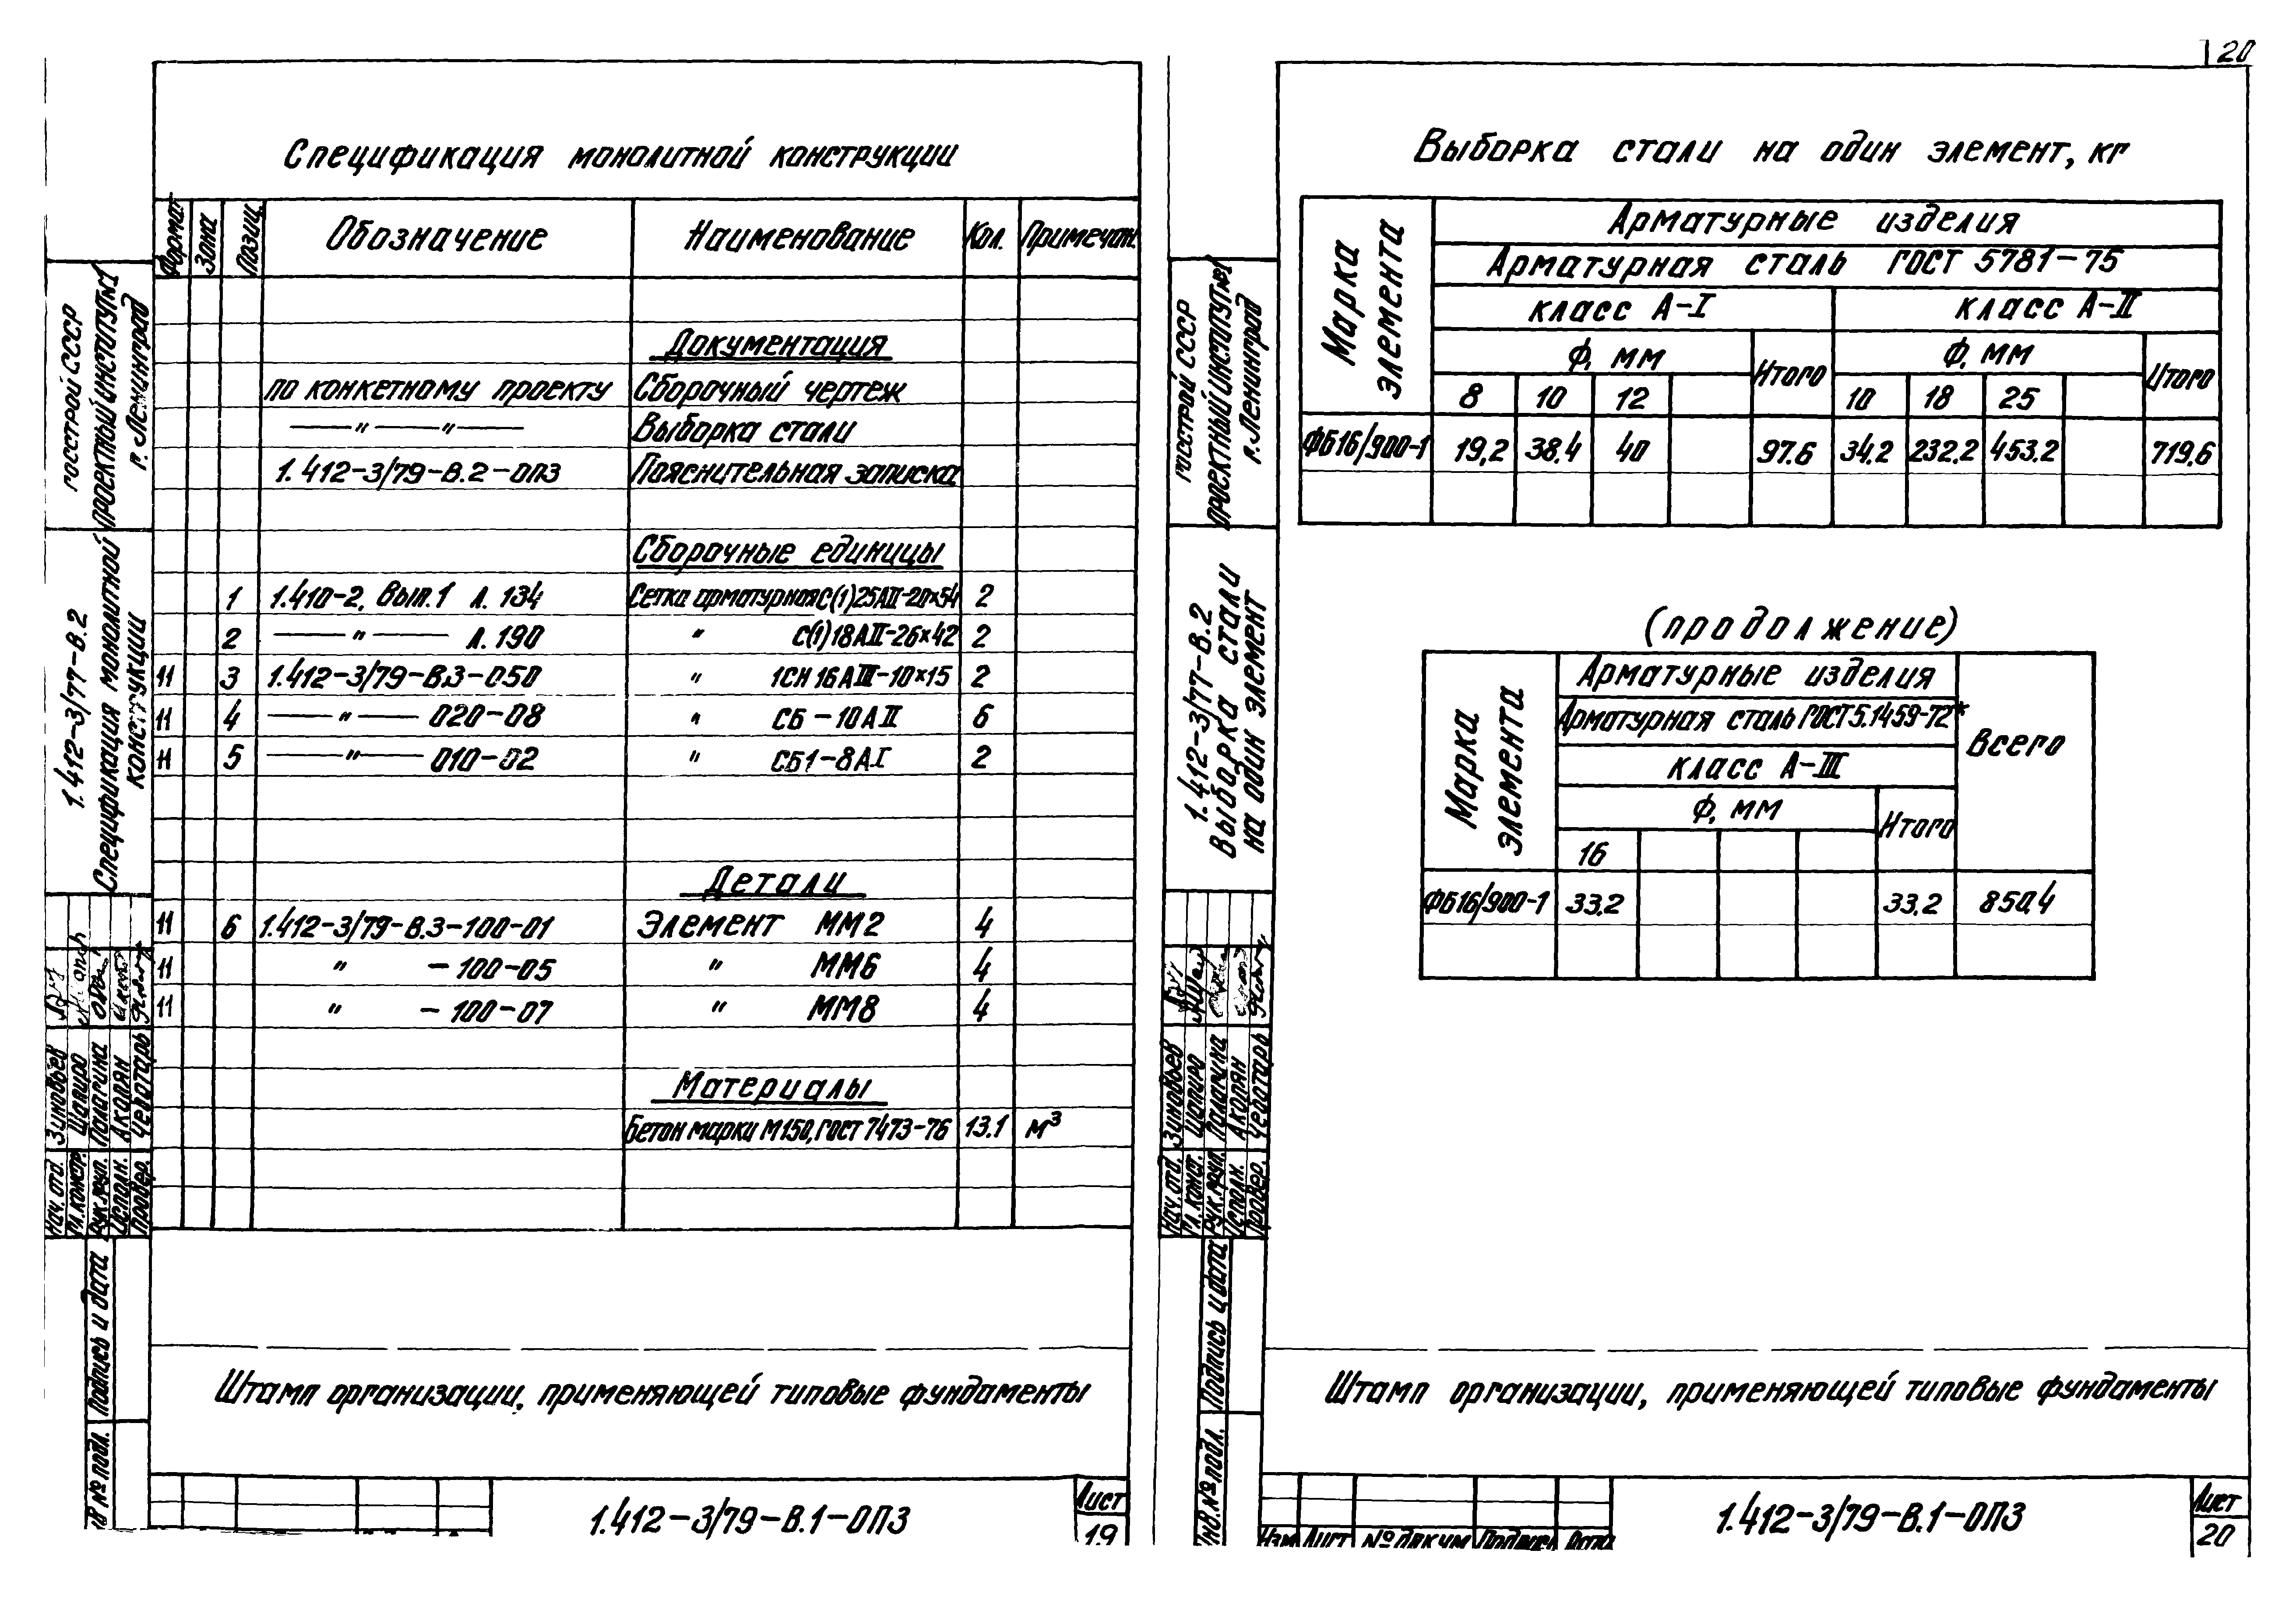 20
Спецификация монолитной конструкции
Формат Зона Позиц. Обозначение Наименование Кол. Примечан.
Документация
по конкетному проекту Сборочный чертеж
—〃—〃— Выборка стали
1.412-3/79-В.2-ОПЗ Пояснительная записка
Сборочные единицы
1 1.410-2, Вып.1 л. 134 Сетка арматурная С(1)25АII-20×54 2
2 —〃— л. 190 〃 С(1)18АII-26×42 2
11 3 1.412-3/79-В.3-050 〃 1СН16АIII-10×15 2
11 4 —〃— 020-08 〃 СБ-10АII 6
11 5 —〃— 010-02 〃 СБ1-8АI 2
Детали
11 6 1.412-3/79-В.3-100-01 Элемент ММ2 4
11 〃 -100-05 〃 ММ6 4
11 〃 -100-07 〃 ММ8 4
Материалы
Бетон марки М150, ГОСТ 7473-76 13.1 м³
Штамп организации, применяющей типовые фундаменты
1.412-3/79-В.1-ОПЗ
Лист
19
Госстрой СССР
Проектный институт №1
г. Ленинград
1.412-3/77-В.2
Спецификация монолитной
конструкции
Нач. отд. Зиновьев
Гл. констр. Шапиро
Рук. груп.
Исполн. Акопян
Провер. Чепотарь
Подпись и дата
№ подл.
Выборка стали на один элемент, кг
Марка элемента
Арматурные изделия
Арматурная сталь ГОСТ 5781-75
класс А-I класс А-II
Ф, мм Итого Ф, мм Итого
8 10 12 10 18 25
ФБ16/900-1 19,2 38.4 40 97.6 34.2 232.2 453.2 719.6
(продолжение)
Марка элемента
Арматурные изделия
Арматурная сталь ГОСТ 5.1459-72*
Всего
класс А-III
Ф, мм Итого
16
ФБ16/900-1 33.2 33.2 850,4
Штамп организации, применяющей типовые фундаменты
Изм Лист № докум Подпись Дата
1.412-3/79-В.1-ОПЗ
Лист
20
Госстрой СССР
Проектный институт №1
г. Ленинград
1.412-3/77-В.2
Выборка стали
на один элемент
Нач. отд. Зиновьев
Гл. конст. Шапиро
Рук. груп.
Исполн. Акопян
Провер. Чепотарь
Подпись и дата
Инв. № подл.